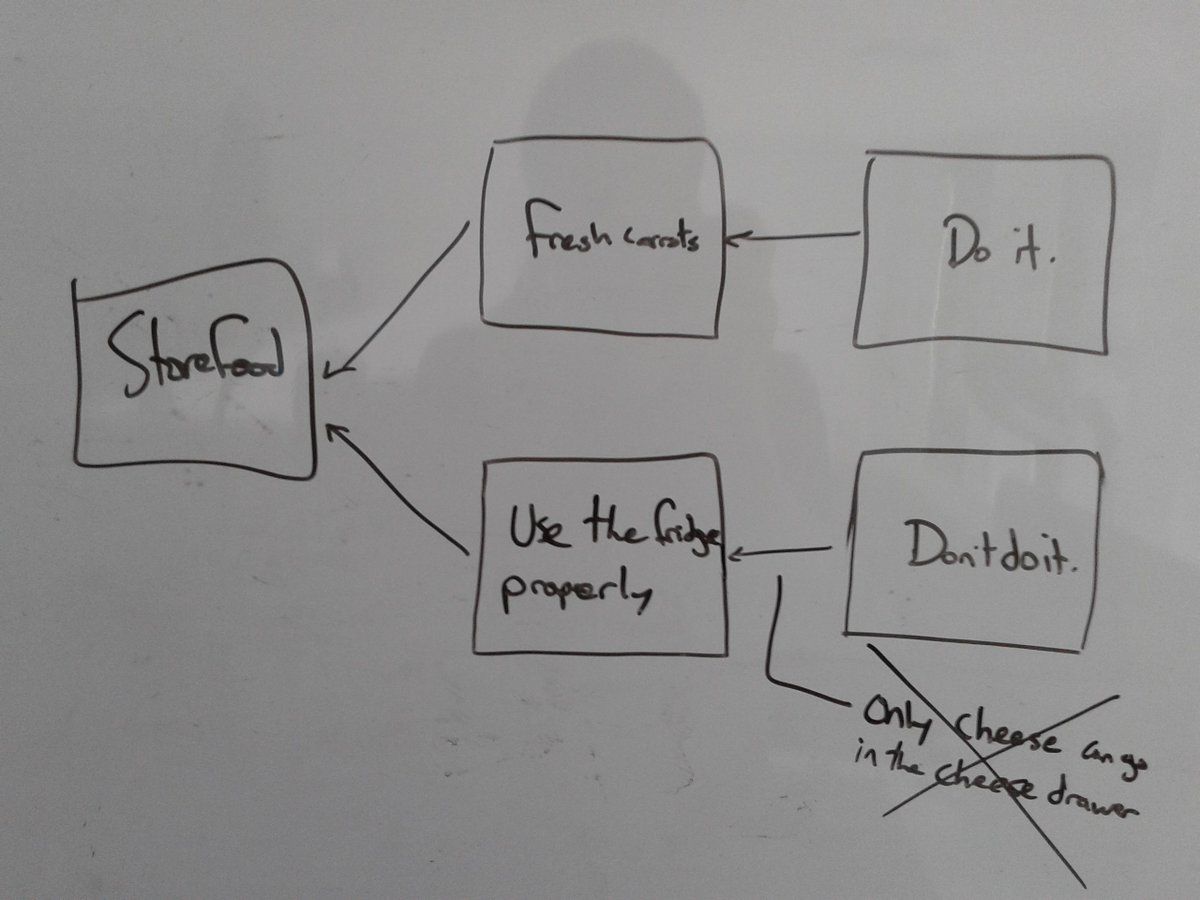 Store Food
Fresh carrots
Do it.
Use the fridge
properly
Don't do it.
Only cheese can go
in the cheese drawer